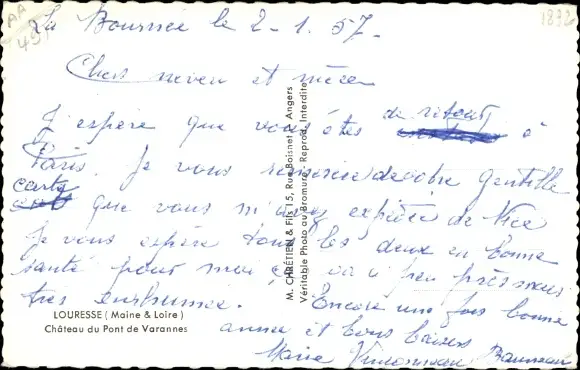 La Bournée le 2-1.57-
Chers neveu et nièce
J'espère que vous êtes de retour à
Paris. Je vous remercie de votre gentille
carte que vous m'avez expédiée de Nice
Je vous espère tous les deux en bonne
santé pour moi ça va u peu près mais
très enrhumée. Encore une fois bonne
année et bons baisers
Marie
LOURESSE (Maine & Loire)
Château du Pont de Varannes
M. CHRÉTIEN & Fils 15, Rue Boisnet - Angers
Véritable Photo au Bromure - Reprod. Interdite
AA
45
1892